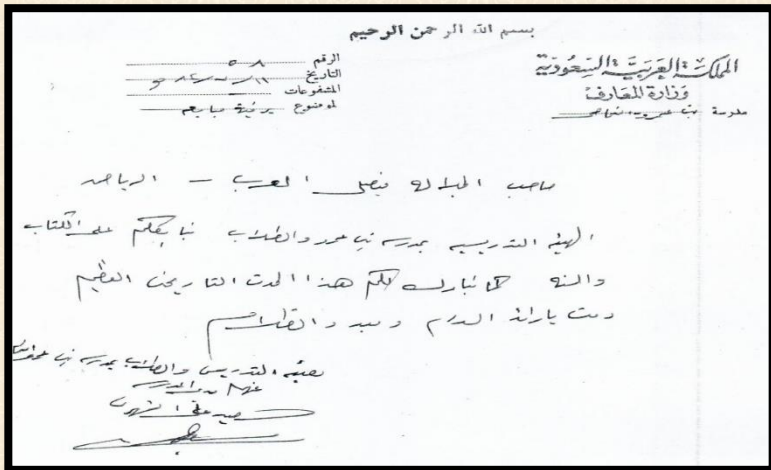 بسم الله الرحمن الرحيم
المملكة العربية السعودية
وزارة المعارف
مدرسة بني عمرو
الرقم ٥٠٨
التاريخ
المشفوعات
الموضوع برقية مبايعه
صاحب الجلاله فيصل العرب - الرياض
الهيئه التدريسيه بمدرسه بني عمرو والطلاب نبايعكم على الكتاب
والسنه كما نبارك لكم هذا الحدث التاريخي العظيم
دمت يا رائد السلام
هيئه التدريس والطلاب بمدرسه بني عمرو
عنهم مدير المدرسه